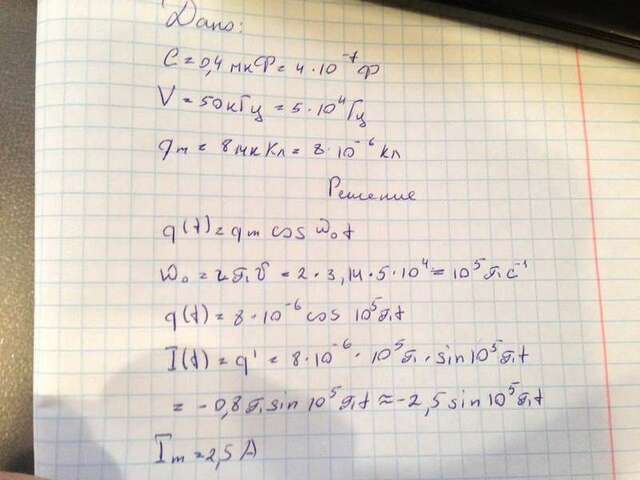 Дано:
C = 0,4 мкФ = 4 · 10⁻⁷ Ф
V = 50 кГц = 5 · 10⁴ Гц
qm = 8 мкКл = 8 · 10⁻⁶ кл
Решение
q(t) = qm cos ω₀t
ω₀ = 2πν = 2 · 3,14 · 5 · 10⁴ = 10⁵ π c⁻¹
q(t) = 8 · 10⁻⁶ cos 10⁵πt
I(t) = q' = 8 · 10⁻⁶ · 10⁵π · sin 10⁵πt
= -0,8π sin 10⁵πt ≈ -2,5 sin 10⁵πt
Im = 2,5 A